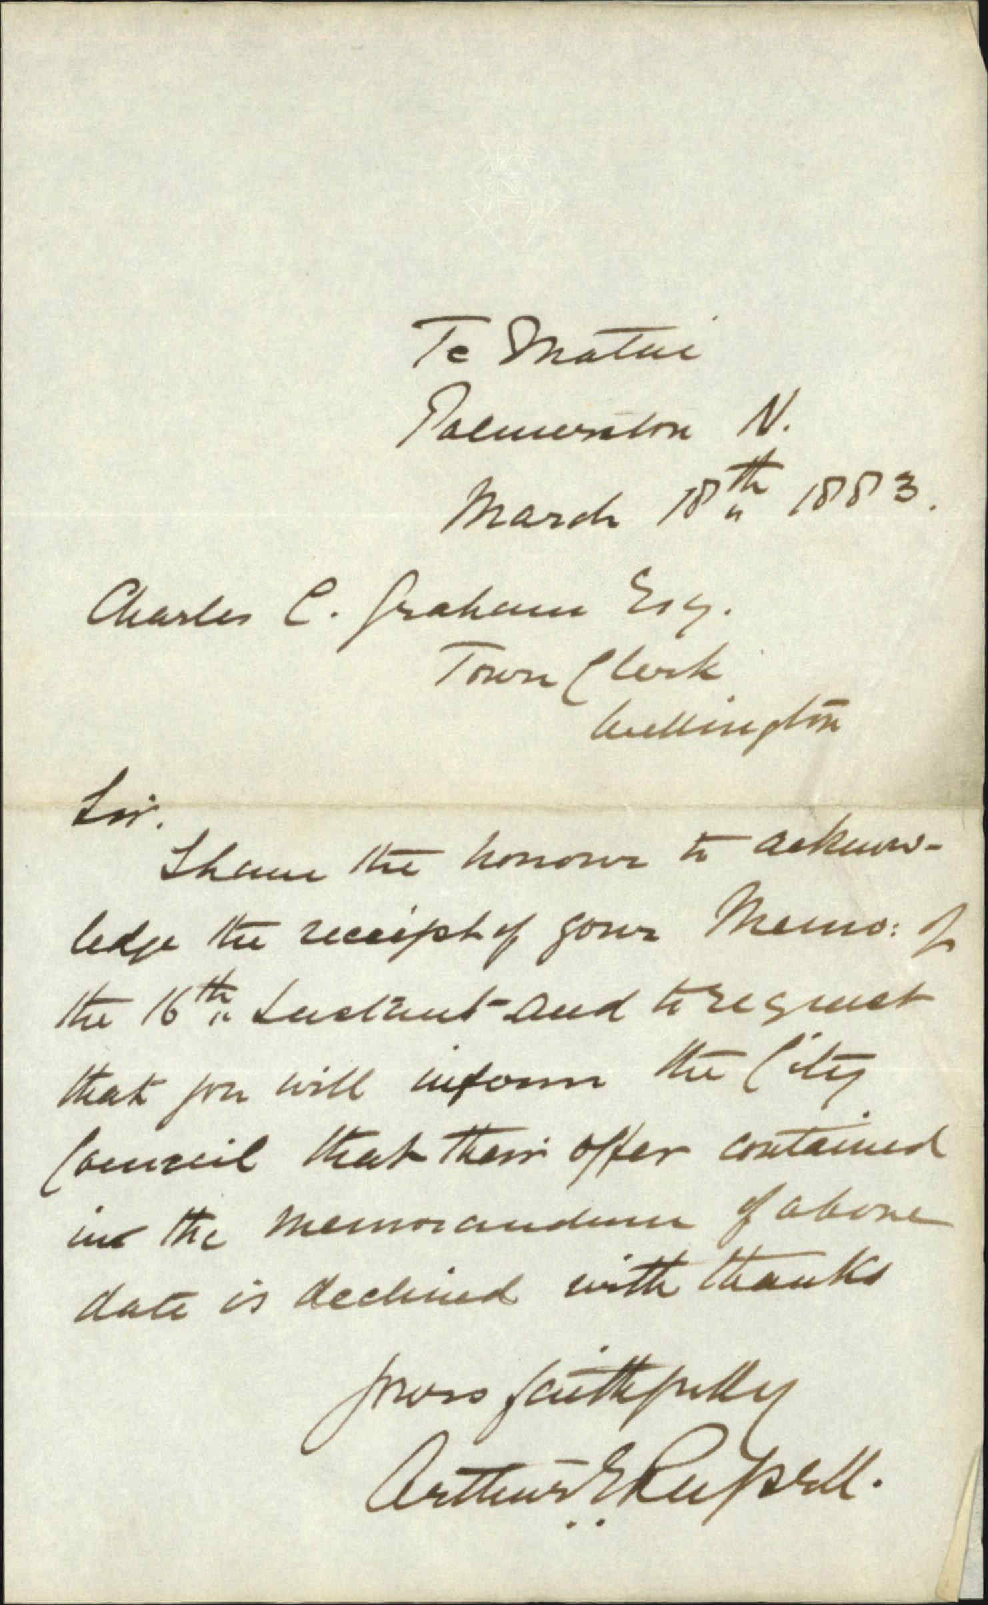 Te Matai
Palmerston N.
March 18th 1883.
Charles C. Graham Esq.
Town Clerk
Wellington
Sir.
I have the honour to acknow-
ledge the receipt of your Memo: of
the 16th Instant and to request
that you will inform the City
Council that their offer contained
in the memorandum of above
date is declined with thanks
Yours faithfully
Arthur E Russell.